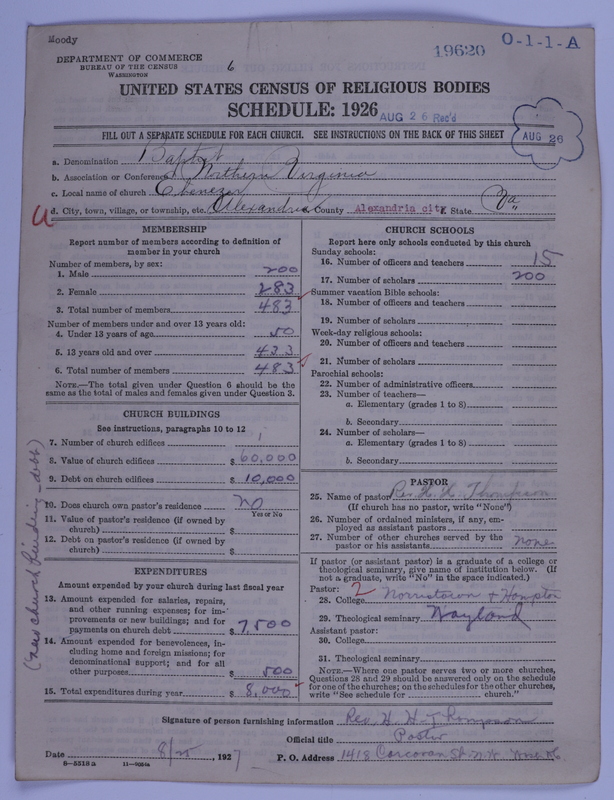 Moody
19620
O-1-1-A
DEPARTMENT OF COMMERCE
BUREAU OF THE CENSUS
WASHINGTON
6
UNITED STATES CENSUS OF RELIGIOUS BODIES
SCHEDULE: 1926
AUG 26 Rec'd
FILL OUT A SEPARATE SCHEDULE FOR EACH CHURCH. SEE INSTRUCTIONS ON THE BACK OF THIS SHEET
AUG 26
a. Denomination Baptist
b. Association or Conference Northern Virginia
c. Local name of church Ebenezer
d. City, town, village, or township, etc. Alexandria County Alexandria city State Va
MEMBERSHIP
Report number of members according to definition of
member in your church
Number of members, by sex:
1. Male 200
2. Female 283
3. Total number of members 483
Number of members under and over 13 years old:
4. Under 13 years of age 50
5. 13 years old and over 433
6. Total number of members 483
NOTE.—The total given under Question 6 should be the
same as the total of males and females given under Question 3.
CHURCH BUILDINGS
See instructions, paragraphs 10 to 12
7. Number of church edifices 1
8. Value of church edifices $ 60,000
9. Debt on church edifices $ 10,000
10. Does church own pastor's residence no
Yes or No
11. Value of pastor's residence (if owned by
church) $
12. Debt on pastor's residence (if owned by
church) $
(new church building - debt)
EXPENDITURES
Amount expended by your church during last fiscal year
13. Amount expended for salaries, repairs,
and other running expenses; for im-
provements or new buildings; and for
payments on church debt $ 7,500
14. Amount expended for benevolences, in-
cluding home and foreign missions; for
denominational support; and for all
other purposes $ 500
15. Total expenditures during year $ 8,000
CHURCH SCHOOLS
Report here only schools conducted by this church
Sunday schools:
16. Number of officers and teachers 15
17. Number of scholars 200
Summer vacation Bible schools:
18. Number of officers and teachers
19. Number of scholars
Week-day religious schools:
20. Number of officers and teachers
21. Number of scholars
Parochial schools:
22. Number of administrative officers
23. Number of teachers—
a. Elementary (grades 1 to 8)
b. Secondary
24. Number of scholars—
a. Elementary (grades 1 to 8)
b. Secondary
PASTOR
25. Name of pastor Rev. H. H. Thompson
(If church has no pastor, write "None")
26. Number of ordained ministers, if any, em-
ployed as assistant pastors
27. Number of other churches served by the
pastor or his assistants none
If pastor (or assistant pastor) is a graduate of a college or
theological seminary, give name of institution below. (If
not a graduate, write "No" in the space indicated.)
Pastor: 2
28. College Norristown + Hampton
29. Theological seminary Wayland
Assistant pastor:
30. College
31. Theological seminary
NOTE.—Where one pastor serves two or more churches,
Questions 28 and 29 should be answered only on the schedule
for one of the churches; on the schedules for the other churches,
write "See schedule for church."
Signature of person furnishing information Rev. H. H. Thompson
Official title Pastor
Date 8/25, 1927 P. O. Address 1418 Corcoran St. N.W.
8-5518a